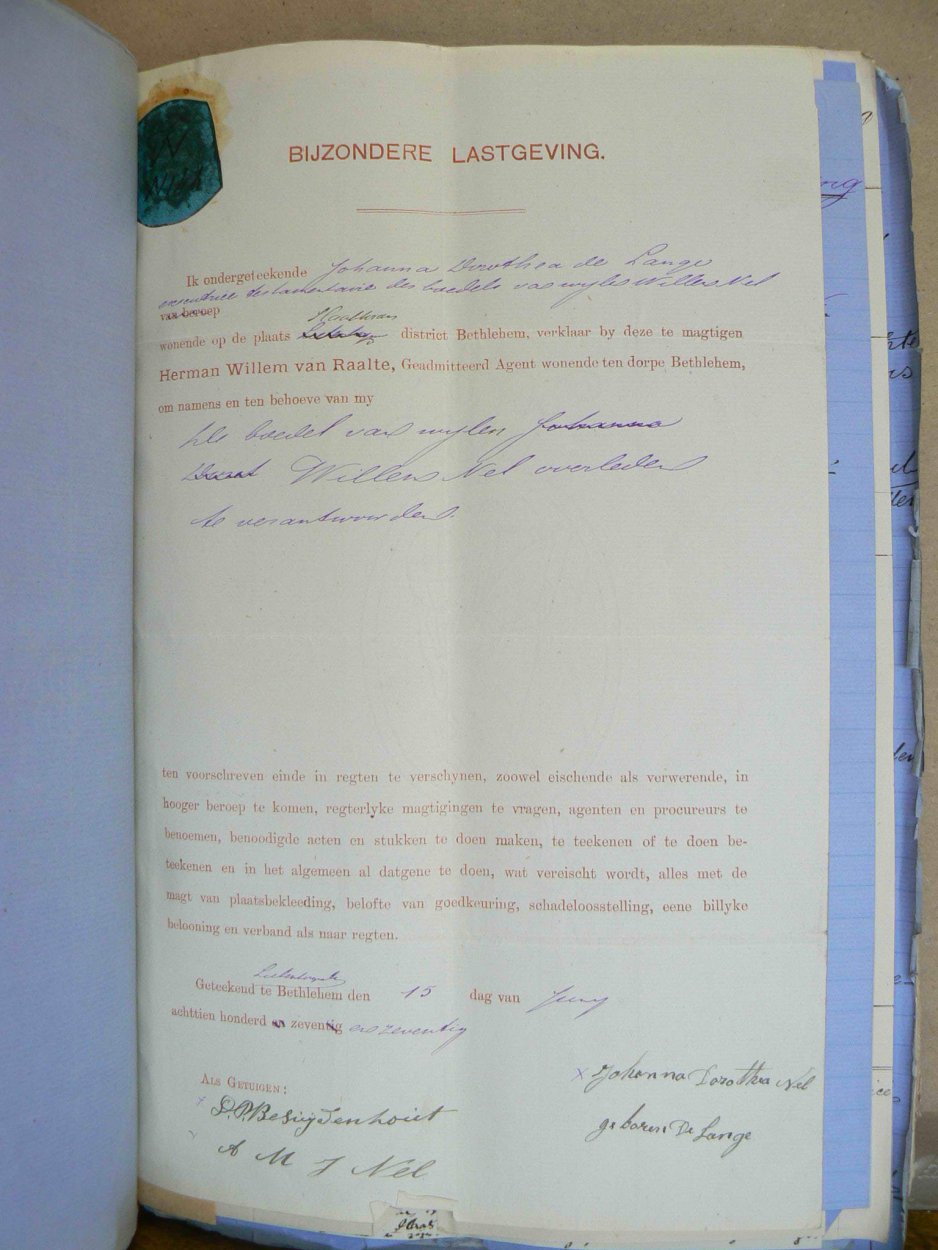 BIJZONDERE LASTGEVING.
Ik ondergeteekende Johanna Dorothea de Lange
executrice testamentaire des boedels van wylen Willem Nel
van beroep
wonende op de plaats district Bethlehem, verklaar by deze te magtigen
Herman Willem van Raalte, Geadmitteerd Agent wonende ten dorpe Bethlehem,
om namens en ten behoeve van my
de boedel van wylen Johanna
Willem Nel overleden
te verantwoorden.
ten voorschreven einde in regten te verschynen, zoowel eischende als verwerende, in
hooger beroep te komen, regterlyke magtigingen te vragen, agenten en procureurs te
benoemen, benoodigde acten en stukken te doen maken, te teekenen of te doen be-
teekenen en in het algemeen al datgene te doen, wat vereischt wordt, alles met de
magt van plaatsbekleeding, belofte van goedkeuring, schadeloosstelling, eene billyke
belooning en verband als naar regten.
Geteekend te Bethlehem den 15 dag van Juny
achttien honderd en zeventig en zeventig
ALS GETUIGEN:
x Johanna Dorothea Nel
geboren De Lange
x D.P. Besuydenhout
A M J Nel